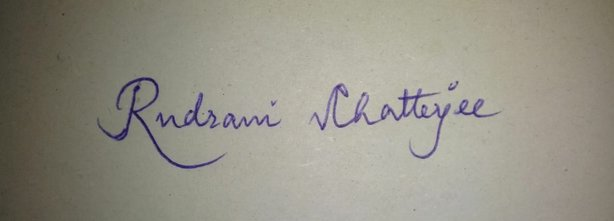 Rudrani Chatterjee